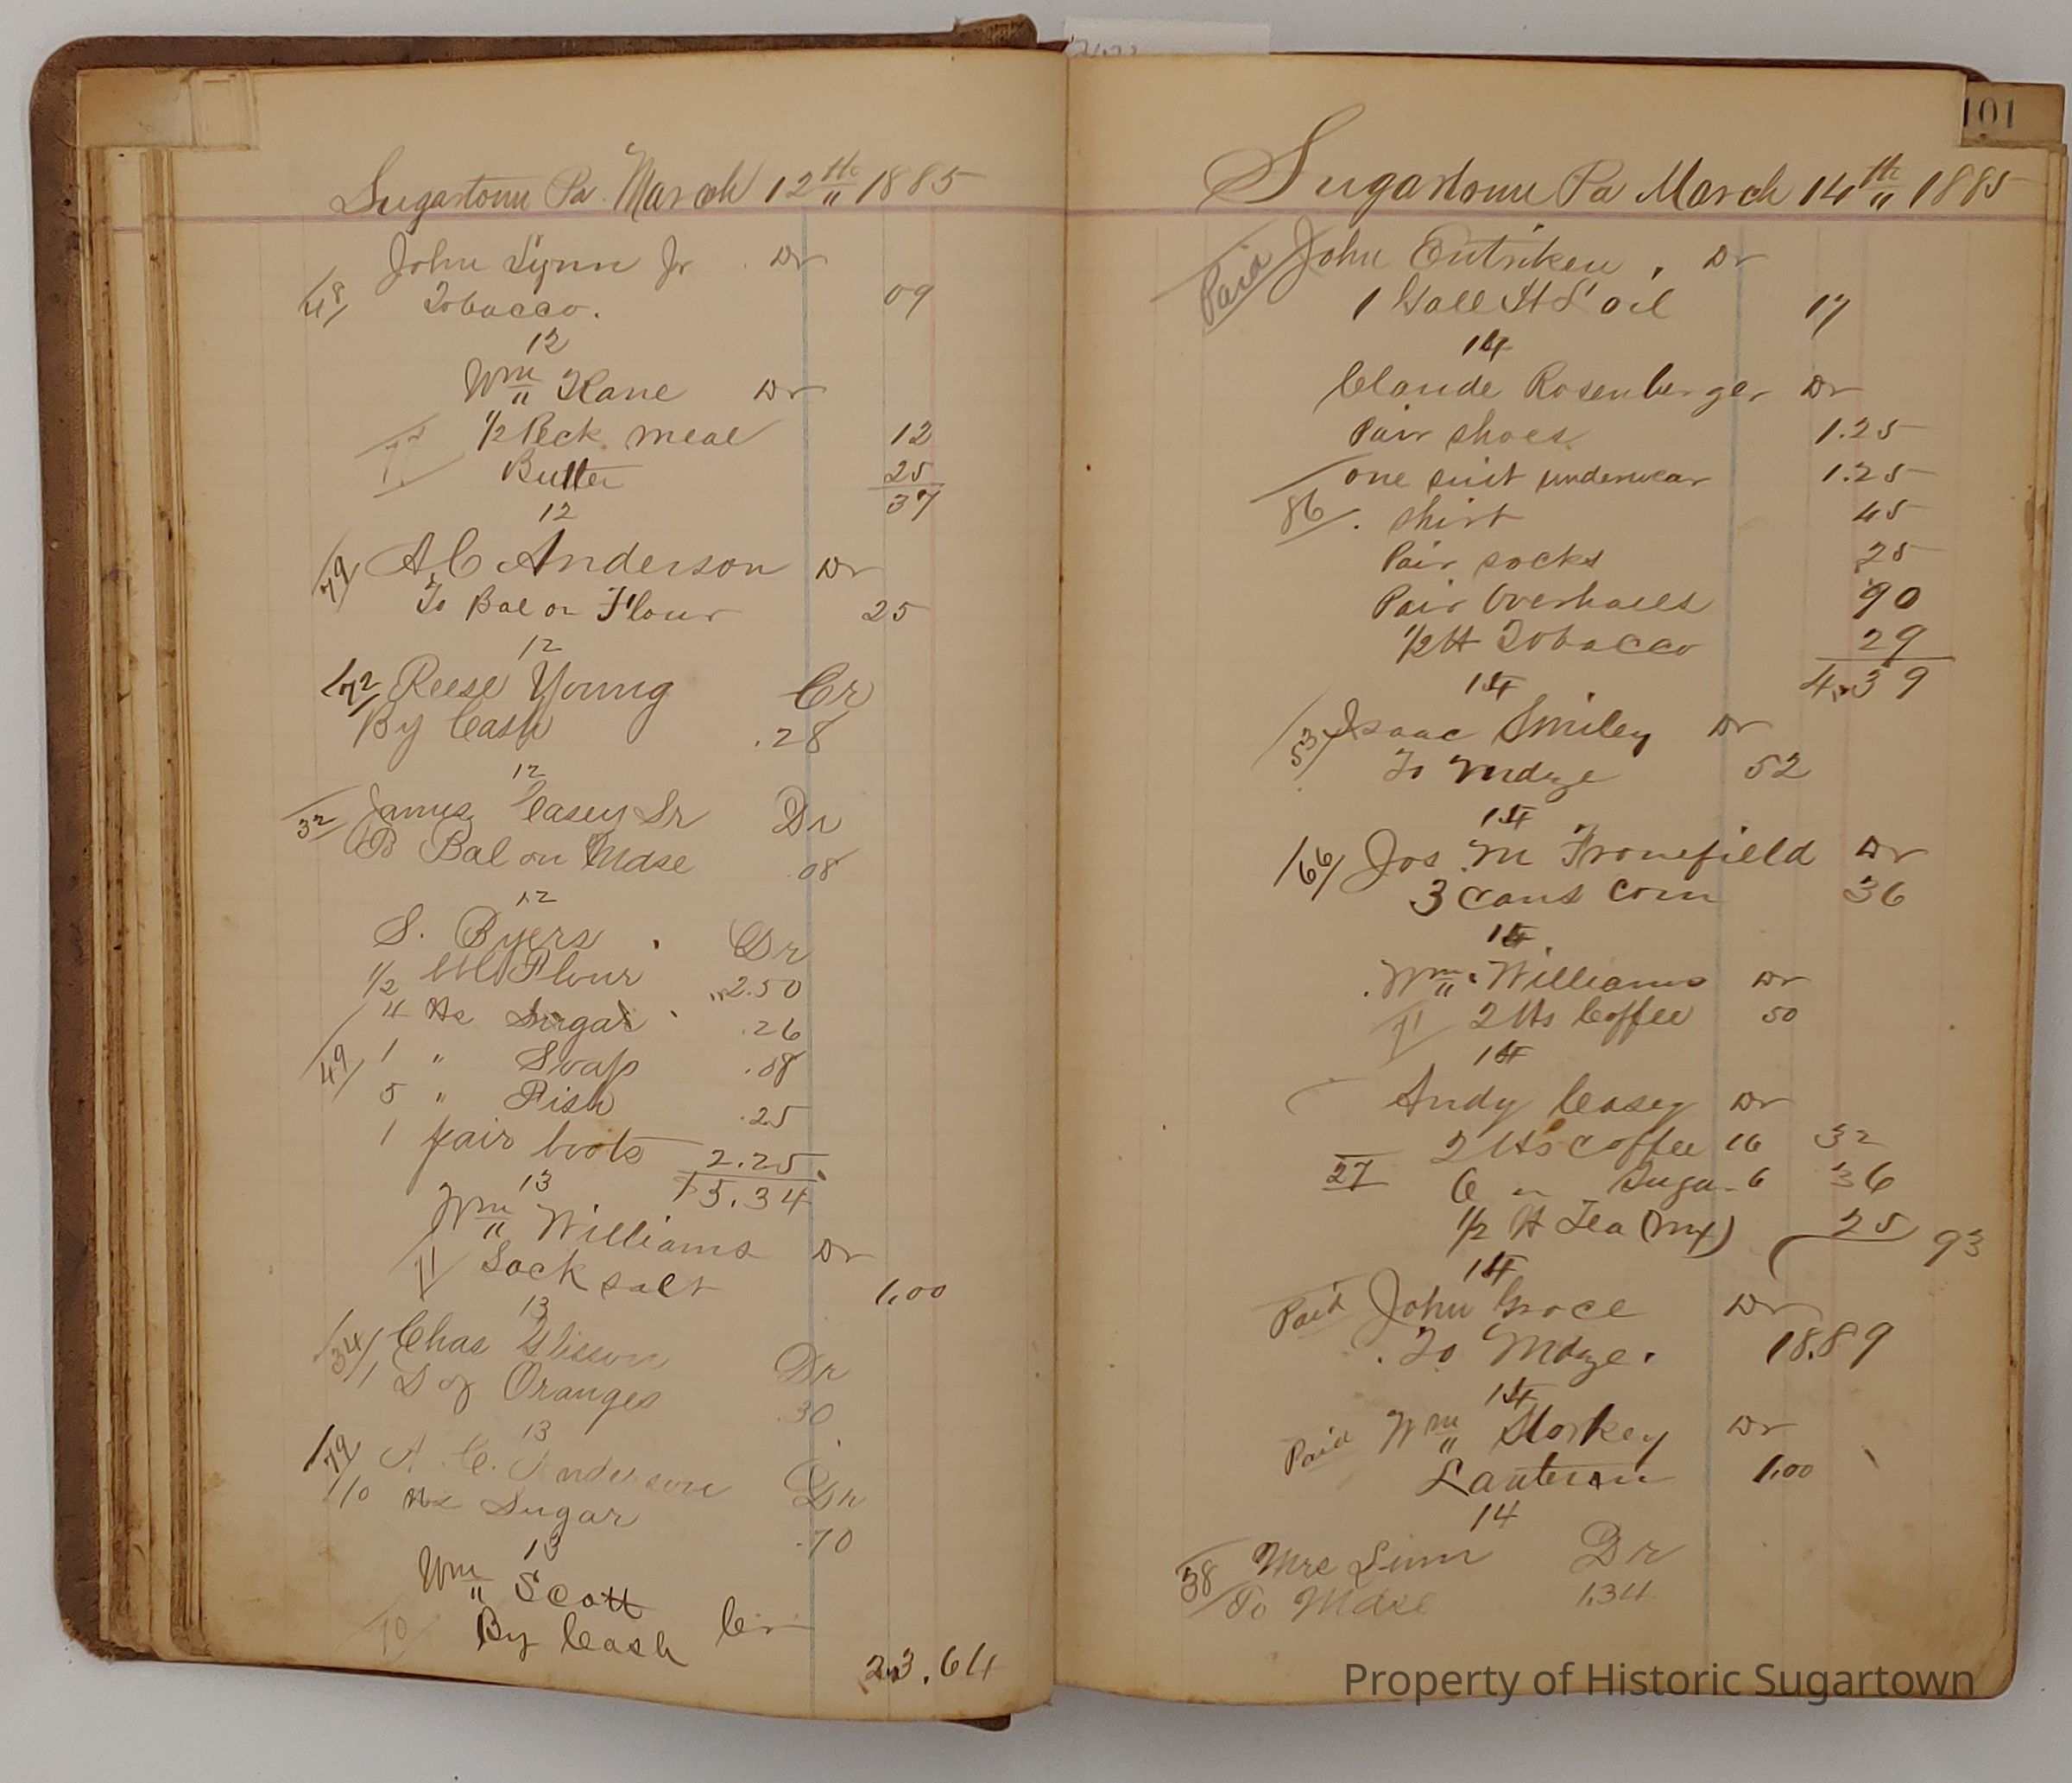 Sugartown Pa. March 12th 1885
John Lynn Jr Dr
48 Tobacco. 09
12
Wm Kane Dr
1/2 Peck meal 12
77 Butter 25
37
12
79 A C Anderson Dr
To Bal on Flour 25
12
72 Reese Young Cr
By Cash .28
12
32 James Casey Sr Dr
To Bal on Mdse .08
12
S. Byers Dr
1/2 bbl Flour 2.50
4 lbs Sugar .26
49 1 " Soap .08
5 " Fish .25
1 pair boots 2.25
$5.34
13
Wm Williams Dr
71 Sack salt 1.00
13
34 Chas Dr
1 Doz Oranges .30
13
79 A. C. Anderson Dr
10 lbs Sugar .70
13
Wm Scott
70 By Cash Cr
23.64
101
Sugartown Pa March 14th 1885
Paid John Entriken. Dr
1 Gall oil 17
14
Claude Rosenberger Dr
Pair shoes 1.25
one suit underwear 1.25
86 shirt 45
Pair socks 25
Pair Overhalls 90
1/2 lb Tobacco 29
4.39
14
53 Isaac Smiley Dr
To Mdze 52
14
66 Jos M Fronefield Dr
3 cans corn 36
14
Wm Williams Dr
71 2 lbs Coffee 50
14
Andy Casey Dr
2 lbs coffee 16 32
27 6 " Sugar 6 36
1/2 lb Tea (Mx) 25 93
14
Paid John Groce Dr
To Mdze. 18.89
14
Paid Wm Storkey Dr
Lantern 1.00
14
38 Mrs Linn Dr
To Mdse 1.34
Property of Historic Sugartown